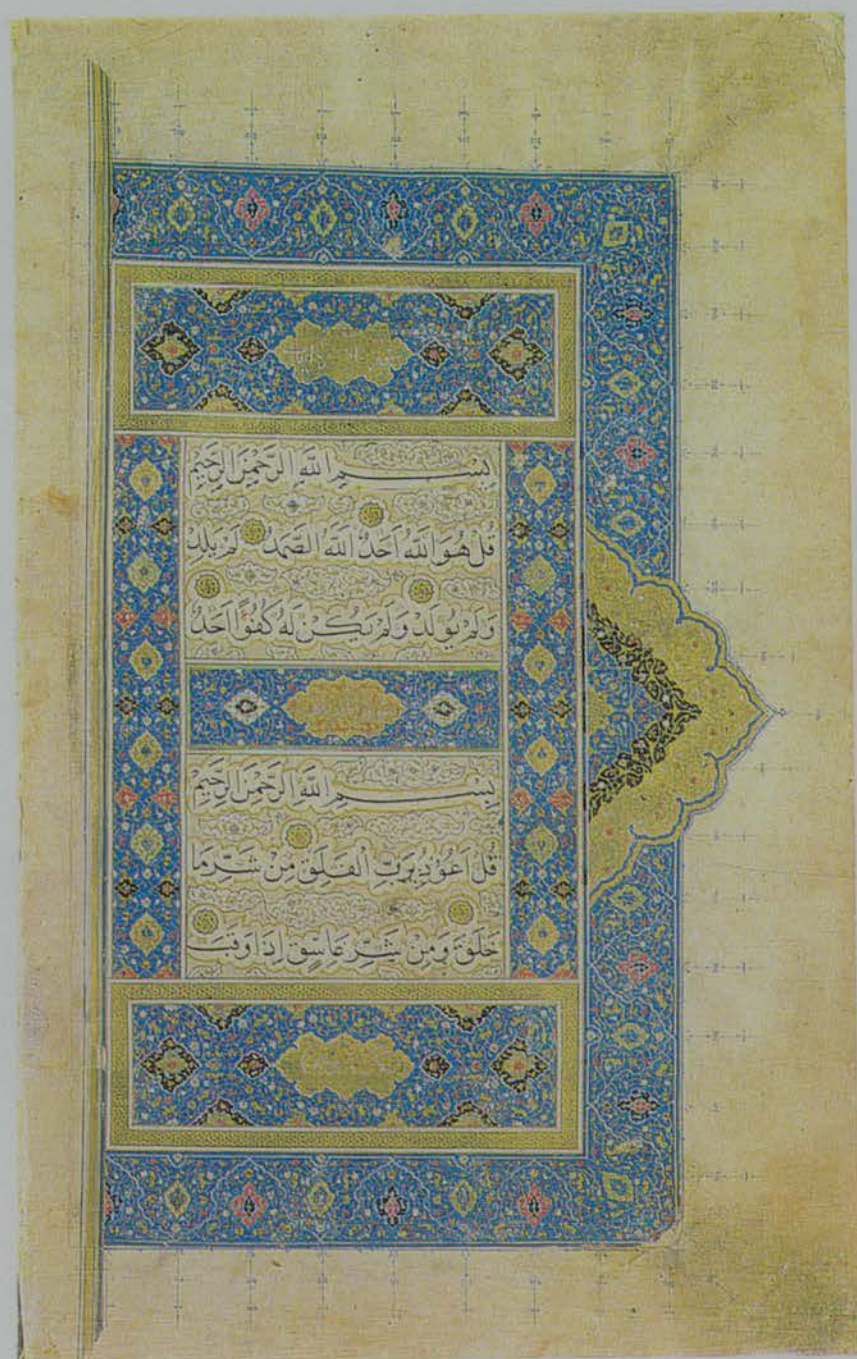 بِسْمِ اللّٰهِ الرَّحْمٰنِ الرَّحِيْمِ
قُلْ هُوَ اللّٰهُ اَحَدٌ اَللّٰهُ الصَّمَدُ لَمْ يَلِدْ
وَلَمْ يُوْلَدْ وَلَمْ يَكُنْ لَهُ كُفُوًا اَحَدٌ
بِسْمِ اللّٰهِ الرَّحْمٰنِ الرَّحِيْمِ
قُلْ اَعُوْذُ بِرَبِّ الْفَلَقِ مِنْ شَرِّ مَا
خَلَقَ وَمِنْ شَرِّ غَاسِقٍ اِذَا وَقَبَ